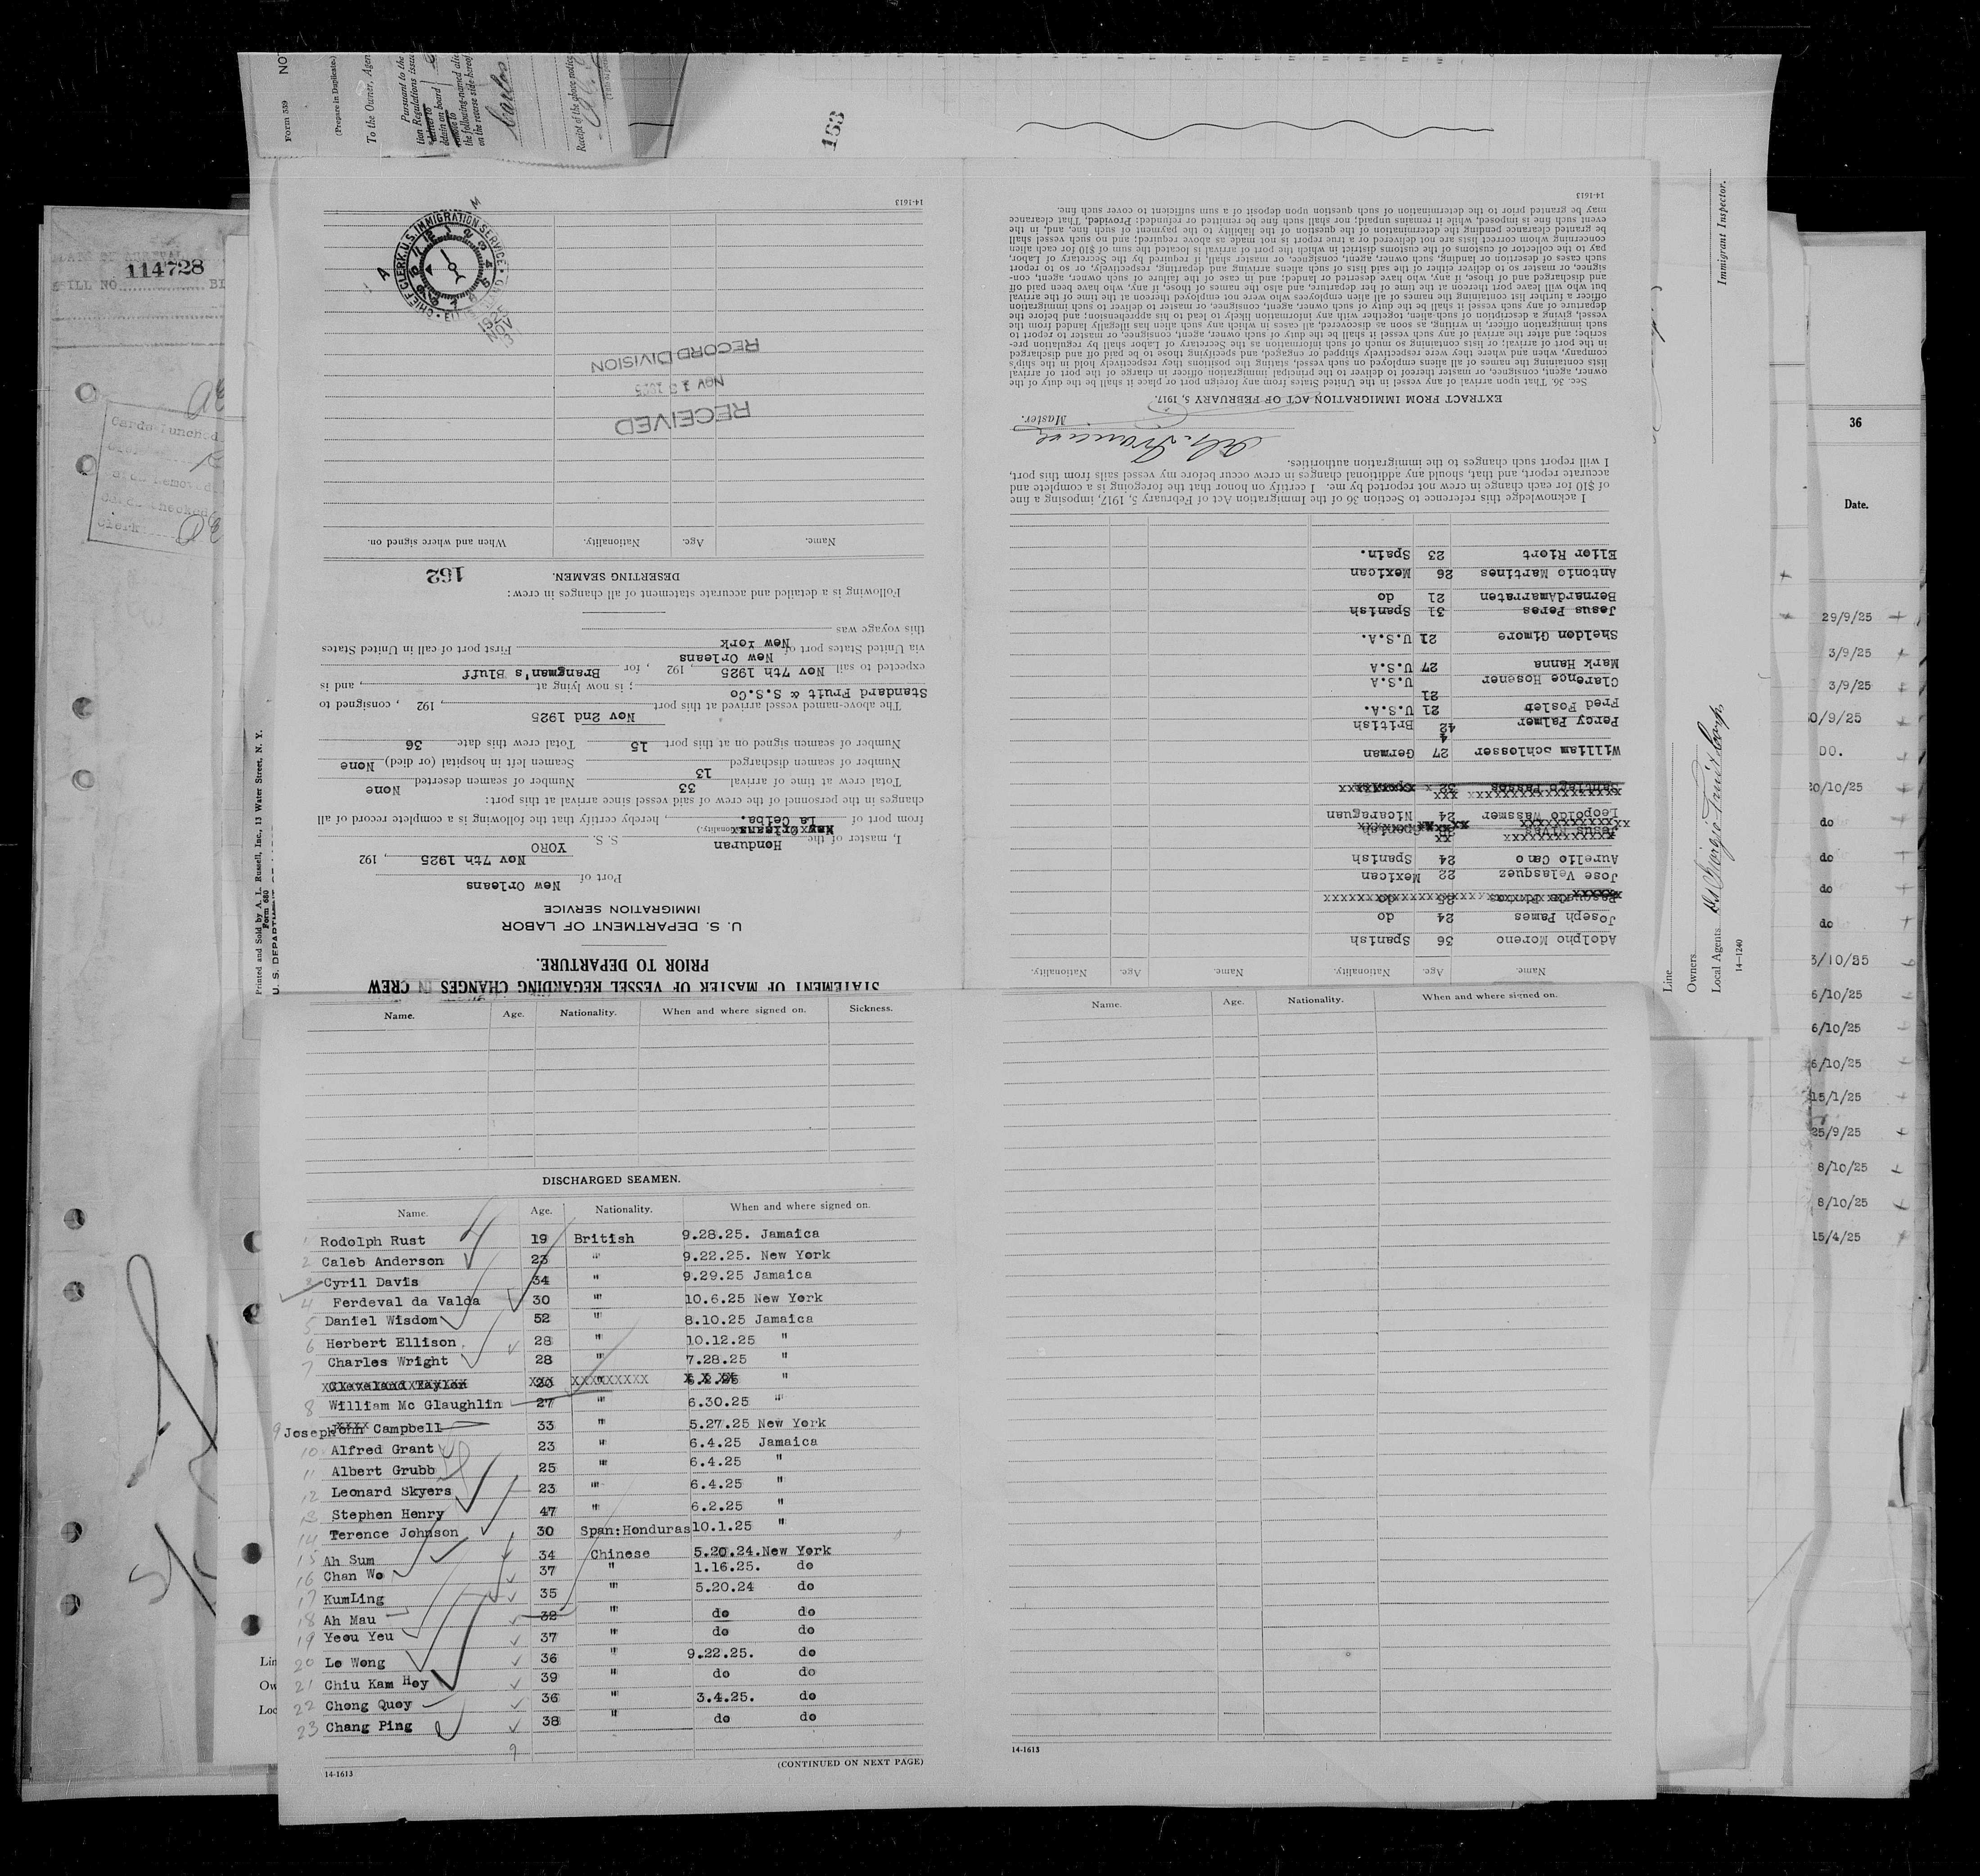 114728
Form 539
(Prepare in Duplicate.)
To the Owner, Agen
Pursuant to the
tion Regulations issu
detain on board
the following-named alie
on the reverse side hereof
Carlos
Receipt of the above notice
163
Immigrant Inspector.
36
Date.
29/9/25
3/9/25
3/9/25
0/9/25
DO.
20/10/25
do
do
do
do
3/10/25
6/10/25
6/10/25
6/10/25
15/1/25
25/9/25
8/10/25
8/10/25
15/4/25
Line
Owners
Local Agents
14—1240
Printed and Sold by A. L. Russell, Inc., 13 Water Street, N. Y.
Form 680
STATEMENT OF MASTER OF VESSEL REGARDING CHANGES IN CREW
PRIOR TO DEPARTURE.
U. S. DEPARTMENT OF LABOR
IMMIGRATION SERVICE
Port of New Orleans
Nov 7th 1925, 192
I, master of the Honduran S. S. YORO
(Nationality.)
from port of La Ceiba., hereby certify that the following is a complete record of all
changes in the personnel of the crew of said vessel since arrival at this port:
Total crew at time of arrival 33 Number of seamen deserted None
Number of seamen discharged 13 Seamen left in hospital (or died) None
Number of seamen signed on at this port 15 Total crew this date 36
The above-named vessel arrived at this port Nov 2nd 1925, 192 , consigned to
Standard Fruit & S.S.Co ; is now lying at , and is
expected to sail Nov 7th 1925, 192 , for Brangman's Bluff
via United States port of New Orleans New York First port of call in United States
this voyage was
Following is a detailed and accurate statement of all changes in crew:
DESERTING SEAMEN. 162
Name. Age. Nationality. When and where signed on.
RECEIVED
NOV 1925
RECORD DIVISION
CHIEF CLERK, U.S. IMMIGRATION SERVICE
1925
NOV
14-1613
Name. Age. Nationality. Name. Age. Nationality.
Adolpho Moreno 36 Spanish
Joseph Pames 24 do
25 do
Jose Velasquez 22 Mexican
Aurelio Cano 24 Spanish
Jesus Rivas Spanish
Leopoldo Wassmer 24 Nicaraguan
Santiago Passos 32
William Schlosser 27 German
Percy Palmer 42 British
Fred Foslet 21 U.S.A.
Clarence Hosener 21 U.S.A
Mark Hanna 27 U.S.A
Sheldon Gimore 21 U.S.A.
Jesus Peres 31 Spanish
BernardAmarraten 21 do
Antonio Martines 26 Mexican
Elier Riort 23 Spain.
I acknowledge this reference to Section 36 of the Immigration Act of February 5, 1917, imposing a fine
of $10 for each change in crew not reported by me. I certify on honor that the foregoing is a complete and
accurate report, and that, should any additional changes in crew occur before my vessel sails from this port,
I will report such changes to the immigration authorities.
Master.
EXTRACT FROM IMMIGRATION ACT OF FEBRUARY 5, 1917.
Sec. 36. That upon arrival of any vessel in the United States from any foreign port or place it shall be the duty of the
owner, agent, consignee, or master thereof to deliver to the principal immigration officer in charge of the port of arrival
lists containing the names of all aliens employed on such vessel, stating the positions they respectively hold in the ship's
company, when and where they were respectively shipped or engaged, and specifying those to be paid off and discharged
in the port of arrival; or lists containing so much of such information as the Secretary of Labor shall by regulation pre-
scribe; and after the arrival of any such vessel it shall be the duty of such owner, agent, consignee, or master to report to
such immigration officer, in writing, as soon as discovered, all cases in which any such alien has illegally landed from the
vessel, giving a description of such alien, together with any information likely to lead to his apprehension; and before the
departure of any such vessel it shall be the duty of such owner, agent, consignee, or master to deliver to such immigration
officer a further list containing the names of all alien employees who were not employed thereon at the time of the arrival
but who will leave port thereon at the time of her departure, and also the names of those, if any, who have been paid off
and discharged and of those, if any, who have deserted or landed; and in case of the failure of such owner, agent, con-
signee, or master so to deliver either of the said lists of such aliens arriving and departing, respectively, or so to report
such cases of desertion or landing, such owner, agent, consignee, or master shall, if required by the Secretary of Labor,
pay to the collector of customs of the customs district in which the port of arrival is located the sum of $10 for each alien
concerning whom correct lists are not delivered or a true report is not made as above required; and no such vessel shall
be granted clearance pending the determination of the question of the liability to the payment of such fine, and, in the
event such fine is imposed, while it remains unpaid; nor shall such fine be remitted or refunded: Provided, That clearance
may be granted prior to the determination of such question upon deposit of a sum sufficient to cover such fine.
14-1613
Name. Age. Nationality. When and where signed on. Sickness.
DISCHARGED SEAMEN.
Name. Age. Nationality. When and where signed on.
1 Rodolph Rust 19 British 9.28.25. Jamaica
2 Caleb Anderson 23 " 9.22.25. New York
3 Cyril Davis 34 " 9.29.25 Jamaica
4 Ferdeval da Valda 30 " 10.6.25 New York
5 Daniel Wisdom 52 " 8.10.25 Jamaica
6 Herbert Ellison 28 " 10.12.25 "
7 Charles Wright 28 " 7.28.25 "
Cleveland Taylor 20 " 6.2.25 "
8 William Mc Glaughlin 27 " 6.30.25 "
9 Joseph John Campbell 33 " 5.27.25 New York
10 Alfred Grant 23 " 6.4.25 Jamaica
11 Albert Grubb 25 " 6.4.25 "
12 Leonard Skyers 23 " 6.4.25 "
13 Stephen Henry 47 " 6.2.25 "
14 Terence Johnson 30 Span:Honduras 10.1.25 "
15 Ah Sum 34 Chinese 5.20.24.New York
16 Chan Wo 37 " 1.16.25. do
17 KumLing 35 " 5.20.24 do
18 Ah Mau 32 " do do
19 Yeou Yeu 37 " do do
20 Lo Wong 36 " 9.22.25. do
21 Chiu Kam Hoy 39 " do do
22 Chong Quoy 36 " 3.4.25. do
23 Chang Ping 38 " do do
9
(CONTINUED ON NEXT PAGE)
14-1613
Name. Age. Nationality. When and where signed on.
14-1613